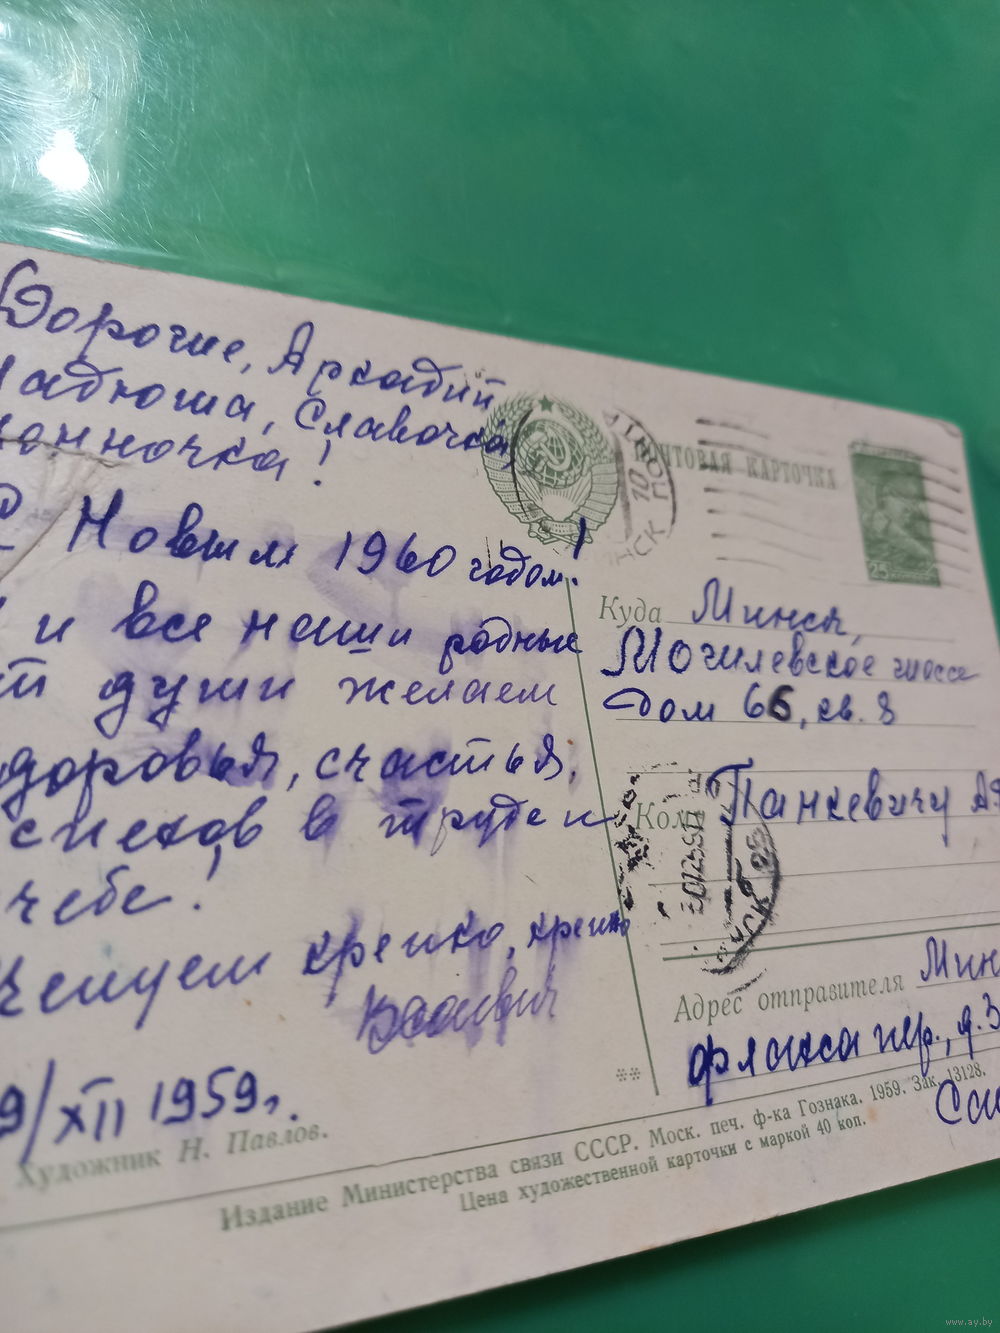 Дорогие, Аркадий
Славочка
!
Новым 1960 годом!
и все наши родные
души желаем
здоровья, счастья,
в труде и
чебе!
крепко, крепко
9/XII 1959г.
Художник Н. Павлов.
ПОЧТОВАЯ КАРТОЧКА
25
Куда Минск,
Могилевское шоссе
Дом 66, кв. 8
Кому Панкевичу
Адрес отправителя Мин
пер., д. 3
Издание Министерства связи СССР. Моск. печ. ф-ка Гознака. 1959. Зак. 13128.
Цена художественной карточки с маркой 40 коп.
www.ay.by